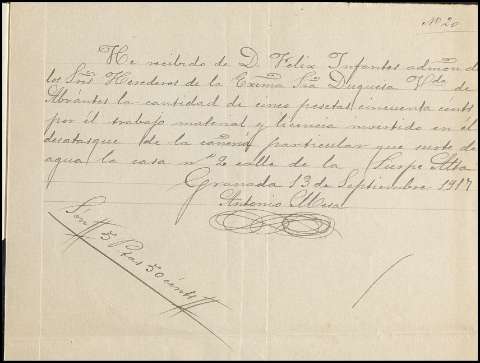 Nº 20
He recibido de D. Felix Infantes admon. de
los Sres Herederos de la Exima Sra Duquesa Vda de
Abrantes la cantidad de cinco pesetas cincuenta cénts
por el trabajo material y licencia invertido en el
desatasque de la cañería particular que surte de
agua la casa nº 2 calle de la Sierpe Alta
Granada 13 de Septiembre 1917
Antonio Mesa
Son # 5 Ptas 50 cénts #